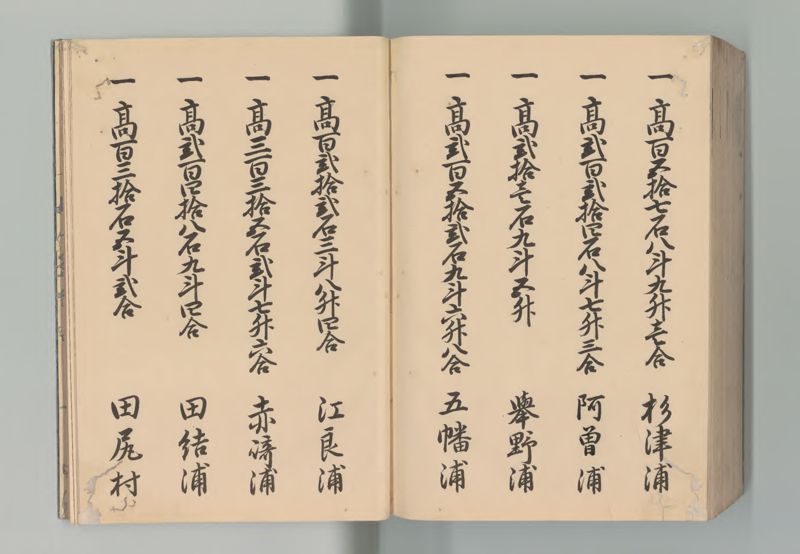 一 高百五拾七石八斗九升壱合 杉津浦
一 高弐百弐拾四石八斗七升三合 阿曽浦
一 高弐拾壱石九斗五升 挙野浦
一 高弐百五拾弐石九斗六升八合 五幡浦
一 高百弐拾弐石三斗八升四合 江良浦
一 高三百三拾五石弐斗七升六合 赤崎浦
一 高弐百四拾八石九斗四合 田結浦
一 高百三拾石五斗弐合 田尻村